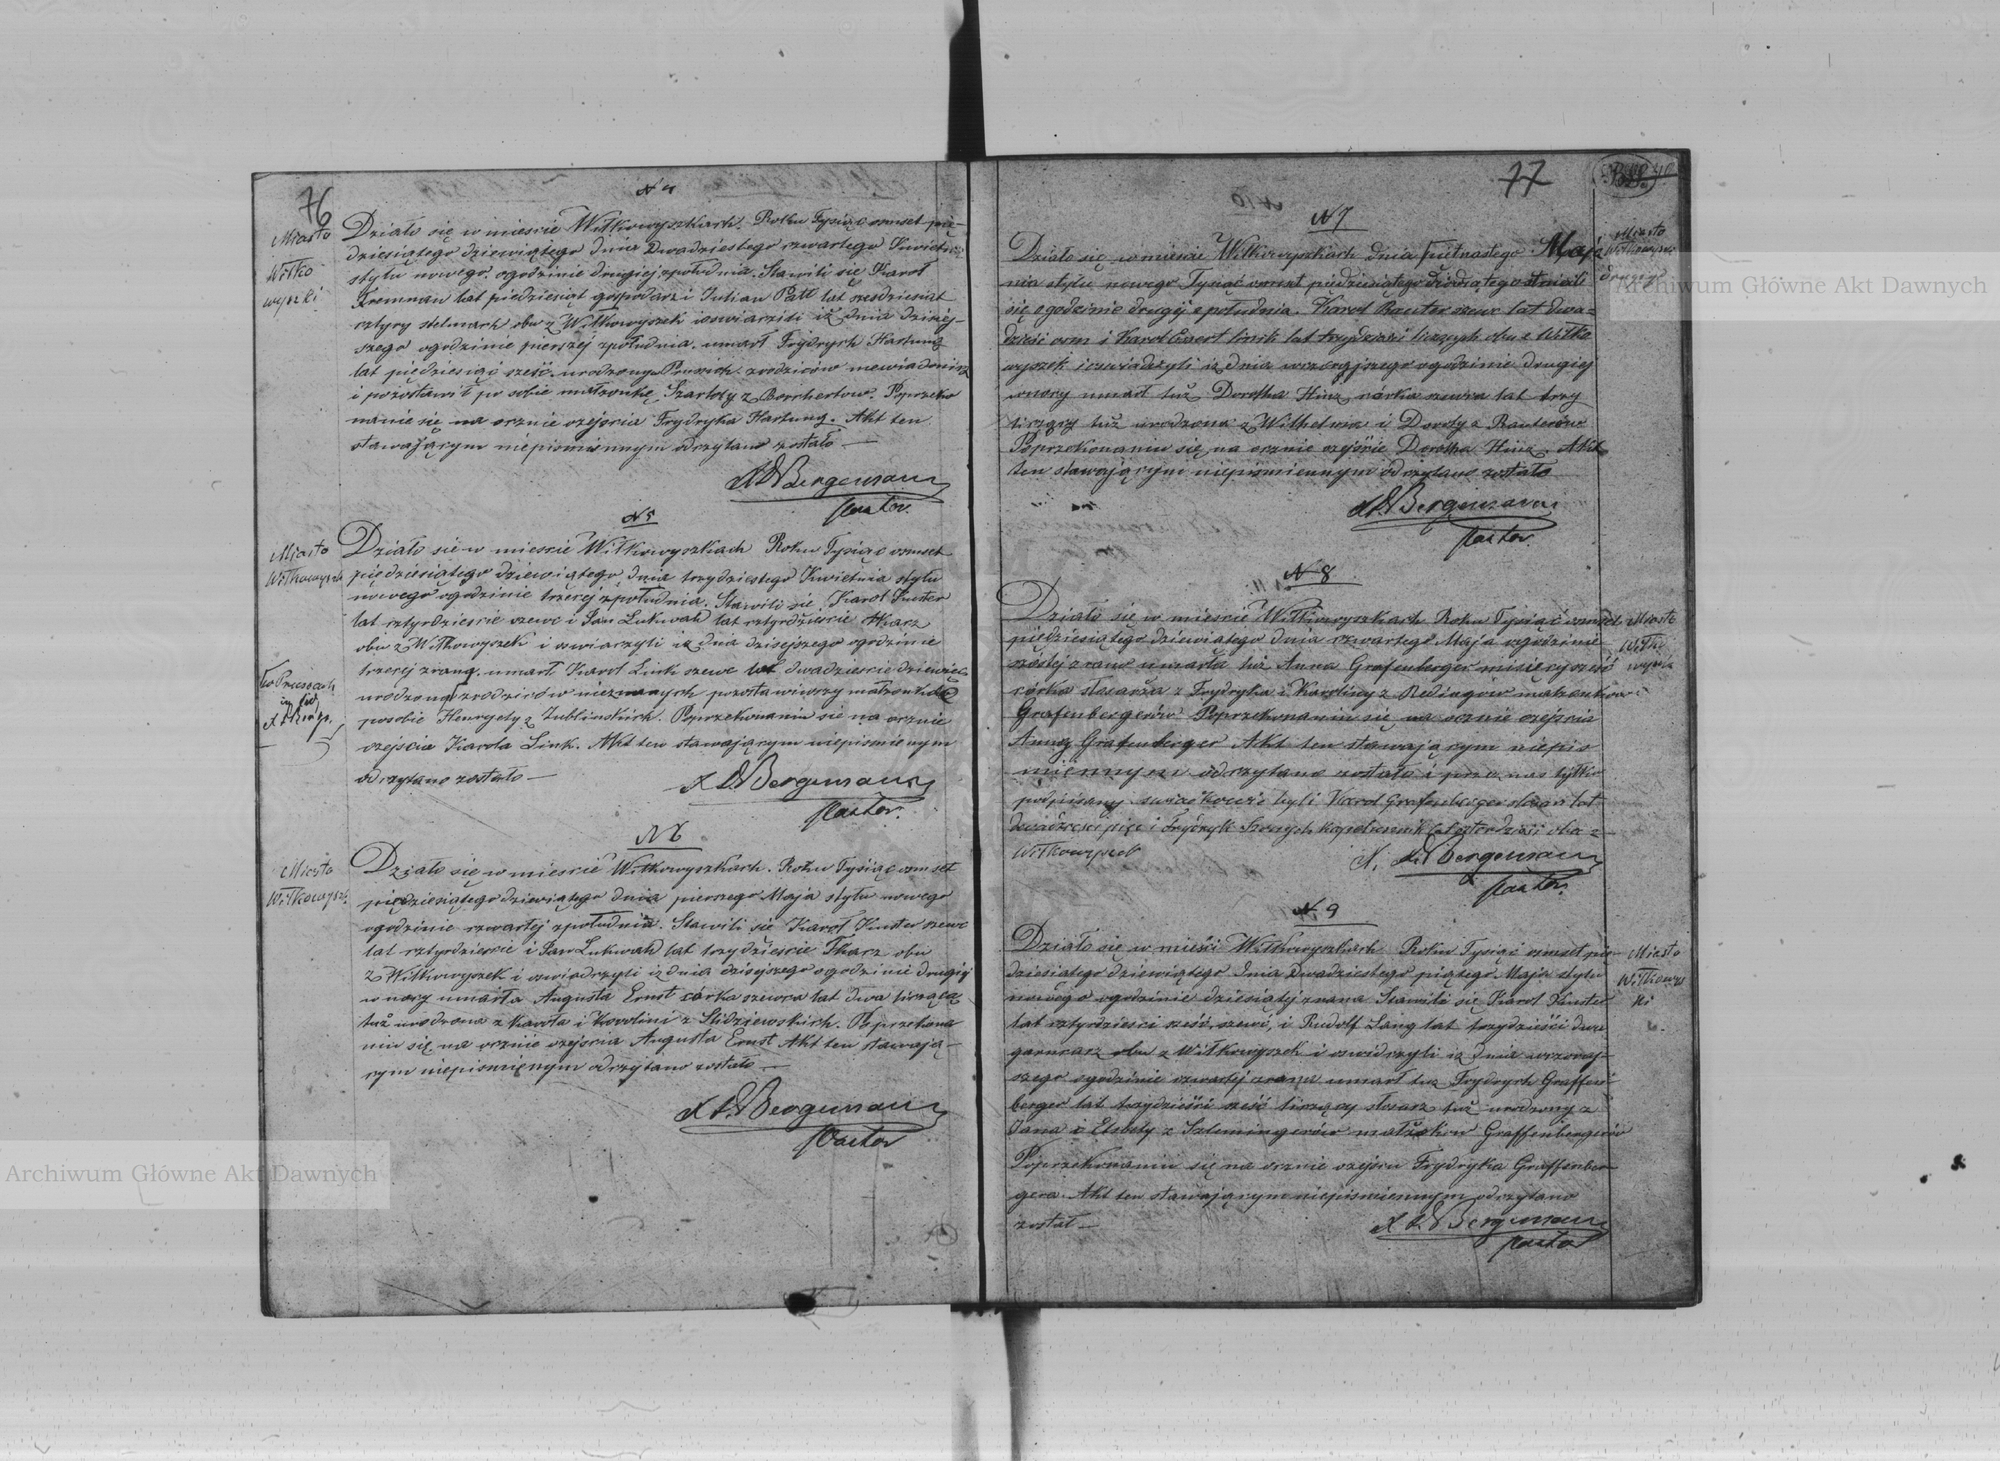 76
N 4
Miasto
Wiłko
wyszki
Działo się w mieście Wiłkowyszkach. Roku Tysiąc osmset pię-
dziesiątego dziewiątego dnia Dwadziestego czwartego Kwietnia
stylu nowego, ogodzinie drugiej zpołudnia. Stawili się Karol
lat piedziesiąt gospodarz i Julian Patt lat szesdziesiat
cztyry stelmach obu z Wiłkowyszek i oswiarzili iż dnia dzisiej-
szego ogodzinie pierszej zpołudnia, umarł Frydrych Hartung
lat piędziesiąć sześć, urodzony Prusich zrodziców niewiadomych
i pozostawił po sobie małżonkę Szarloty z Borchertów. Poprzeko
naniu się na ocznie zejscia Frydryka Hartung. Akt ten
stawającym niepismiennym odczytano zostało —
Bergemann
Pastor.
N 5
Miasto
Wiłkowyszk
Działo sie w miescie Wiłkowyszkach Roku Tysiąc osmset
piędziesiątego dziewiątego, dnia trzydziestego Kwietnia stylu
nowego ogodzinie trzeciej zpołudnia. Stawili sie Karol Kunster
lat cztyrdziescie szewc i Jan Lukwald lat cztyrdziescie tkarz
obu z Wiłkowyszek i oswiarzyli iż dnia dzisejszego ogodzinie
trzeciej zrana, umarł Karol Link szewc lat dwadziescie dziewięć
urodzony zrodziców nieznanych pozostawiwszy małżonkę
posobie Henryety z Zublinskich. Poprzekonaniu sie na ocznie
zejscia Karola Link. Akt ten stawającym niepismienym
odczytano zostało —
w Prusach
Bergemann
Pastor.
N 6
Miasto
Wiłkowysz.
Działo się w miescie Wiłkowyszkach. Roku Tysiąc osmset
piędziesiątego dziewiątego dnia pierszego Maja stylu nowego
ogodzinie czwartej zpołudnia. Stawili sie Karol Kunster szewc
lat cztyrdziescie i Jan Lukwald lat trzydziescie Tkarz obu
z Wiłkowyszek i oswiadrzyli iż dnia dzisejszego ogodzinie drugiej
w nocy umarła Augusta Ernst córka szewca lat dwa licząca
tuż urodzona z Karola i Karolini z Slidziewskich. Poprzekona
niu się na ocznie zejscia Augusta Ernst Akt ten stawają-
cym niepismienym odczytano zostało —
Bergemann
Pastor
77
N 7
Miasto
Wiłkowyszki
Działo się w miescie Wiłkowyszkach dnia pietnastego Maja
nia stylu nowego Tysiąć osmset piedziesiątego dziewiątego stawili
się ogodzinie drugij z południa. Karol Rauter szewc lat dwa-
dzieści osm i Karol Ewert lat trzydzieści liczących obu z Wiłko
wyszek i oswiadżyli iż dnia wczorajszego ogodzinie drugiej
wnocy umarł tuż Dorotha Hinz córka szewca lat trzy
liczączy tuż urodzona z Wilhelma i Doroty z Rauterów
Poprzekonaniu się na ocznie zejście Dorotha Hinz. Akt
ten stawającym niepismiennym odczytano zostało
Bergemann
Pastor.
N 8
Miasto
Wiłko
wyszki
Działo się w miescie Wiłkowyszkach Roku Tysiąć osmset
piędziesiątego dziewiątego dnia czwartego Maja ogodzinie
szóstej zrana umarła tuż Anna Grafenberger miesięcy sześć
córka ślosarza z Frydryka i Karoliny z Redingow małżonków
Grafenbergerów Poprzekonaniu się na ocznie zejścia
Anny Grafenberger Akt ten stawającym niepis
miennym odczytano zostało i przez nas tylko
podpisany swiadkowie byli Karol Grafenberger ślosarz lat
dwadzieści pięc i Frydryk kapelusznik lat czterdzieści oba z
Wiłkowyszek
Bergemann
Pastor.
N 9
Miasto
Wiłkowysz
ki
Działo się w mieści Wiłkowyszkach Roku Tysiąć osmset pię-
dziesiątego dziewiątego dnia Dwadziestego piątego Maja stylu
nowego ogodzinie dziesiątej zrana Stawili się Karol Kunster
lat cztyrdziesci sześć szewc, i Rudolf Lang lat trzydzieści dwa
garncarz obu z Wiłkowyszek i oswidrzyli iż dnia wczoraj-
szego ogodzinie czwartej zrana umarł tuż Frydrych Graffen
berger lat trzydzieści sześć liczący ślosarz tuż urodzony z
Jana i Elsbety z Szlemingerów małżonkow Graffenbergerów
Poprzekonaniu się na ocznie zejscu Frydryka Graffenber
gera. Akt ten stawającym niepismiennym odczytano
został —
Bergemann
Pastor
Archiwum Główne Akt Dawnych
Archiwum Główne Akt Dawnych